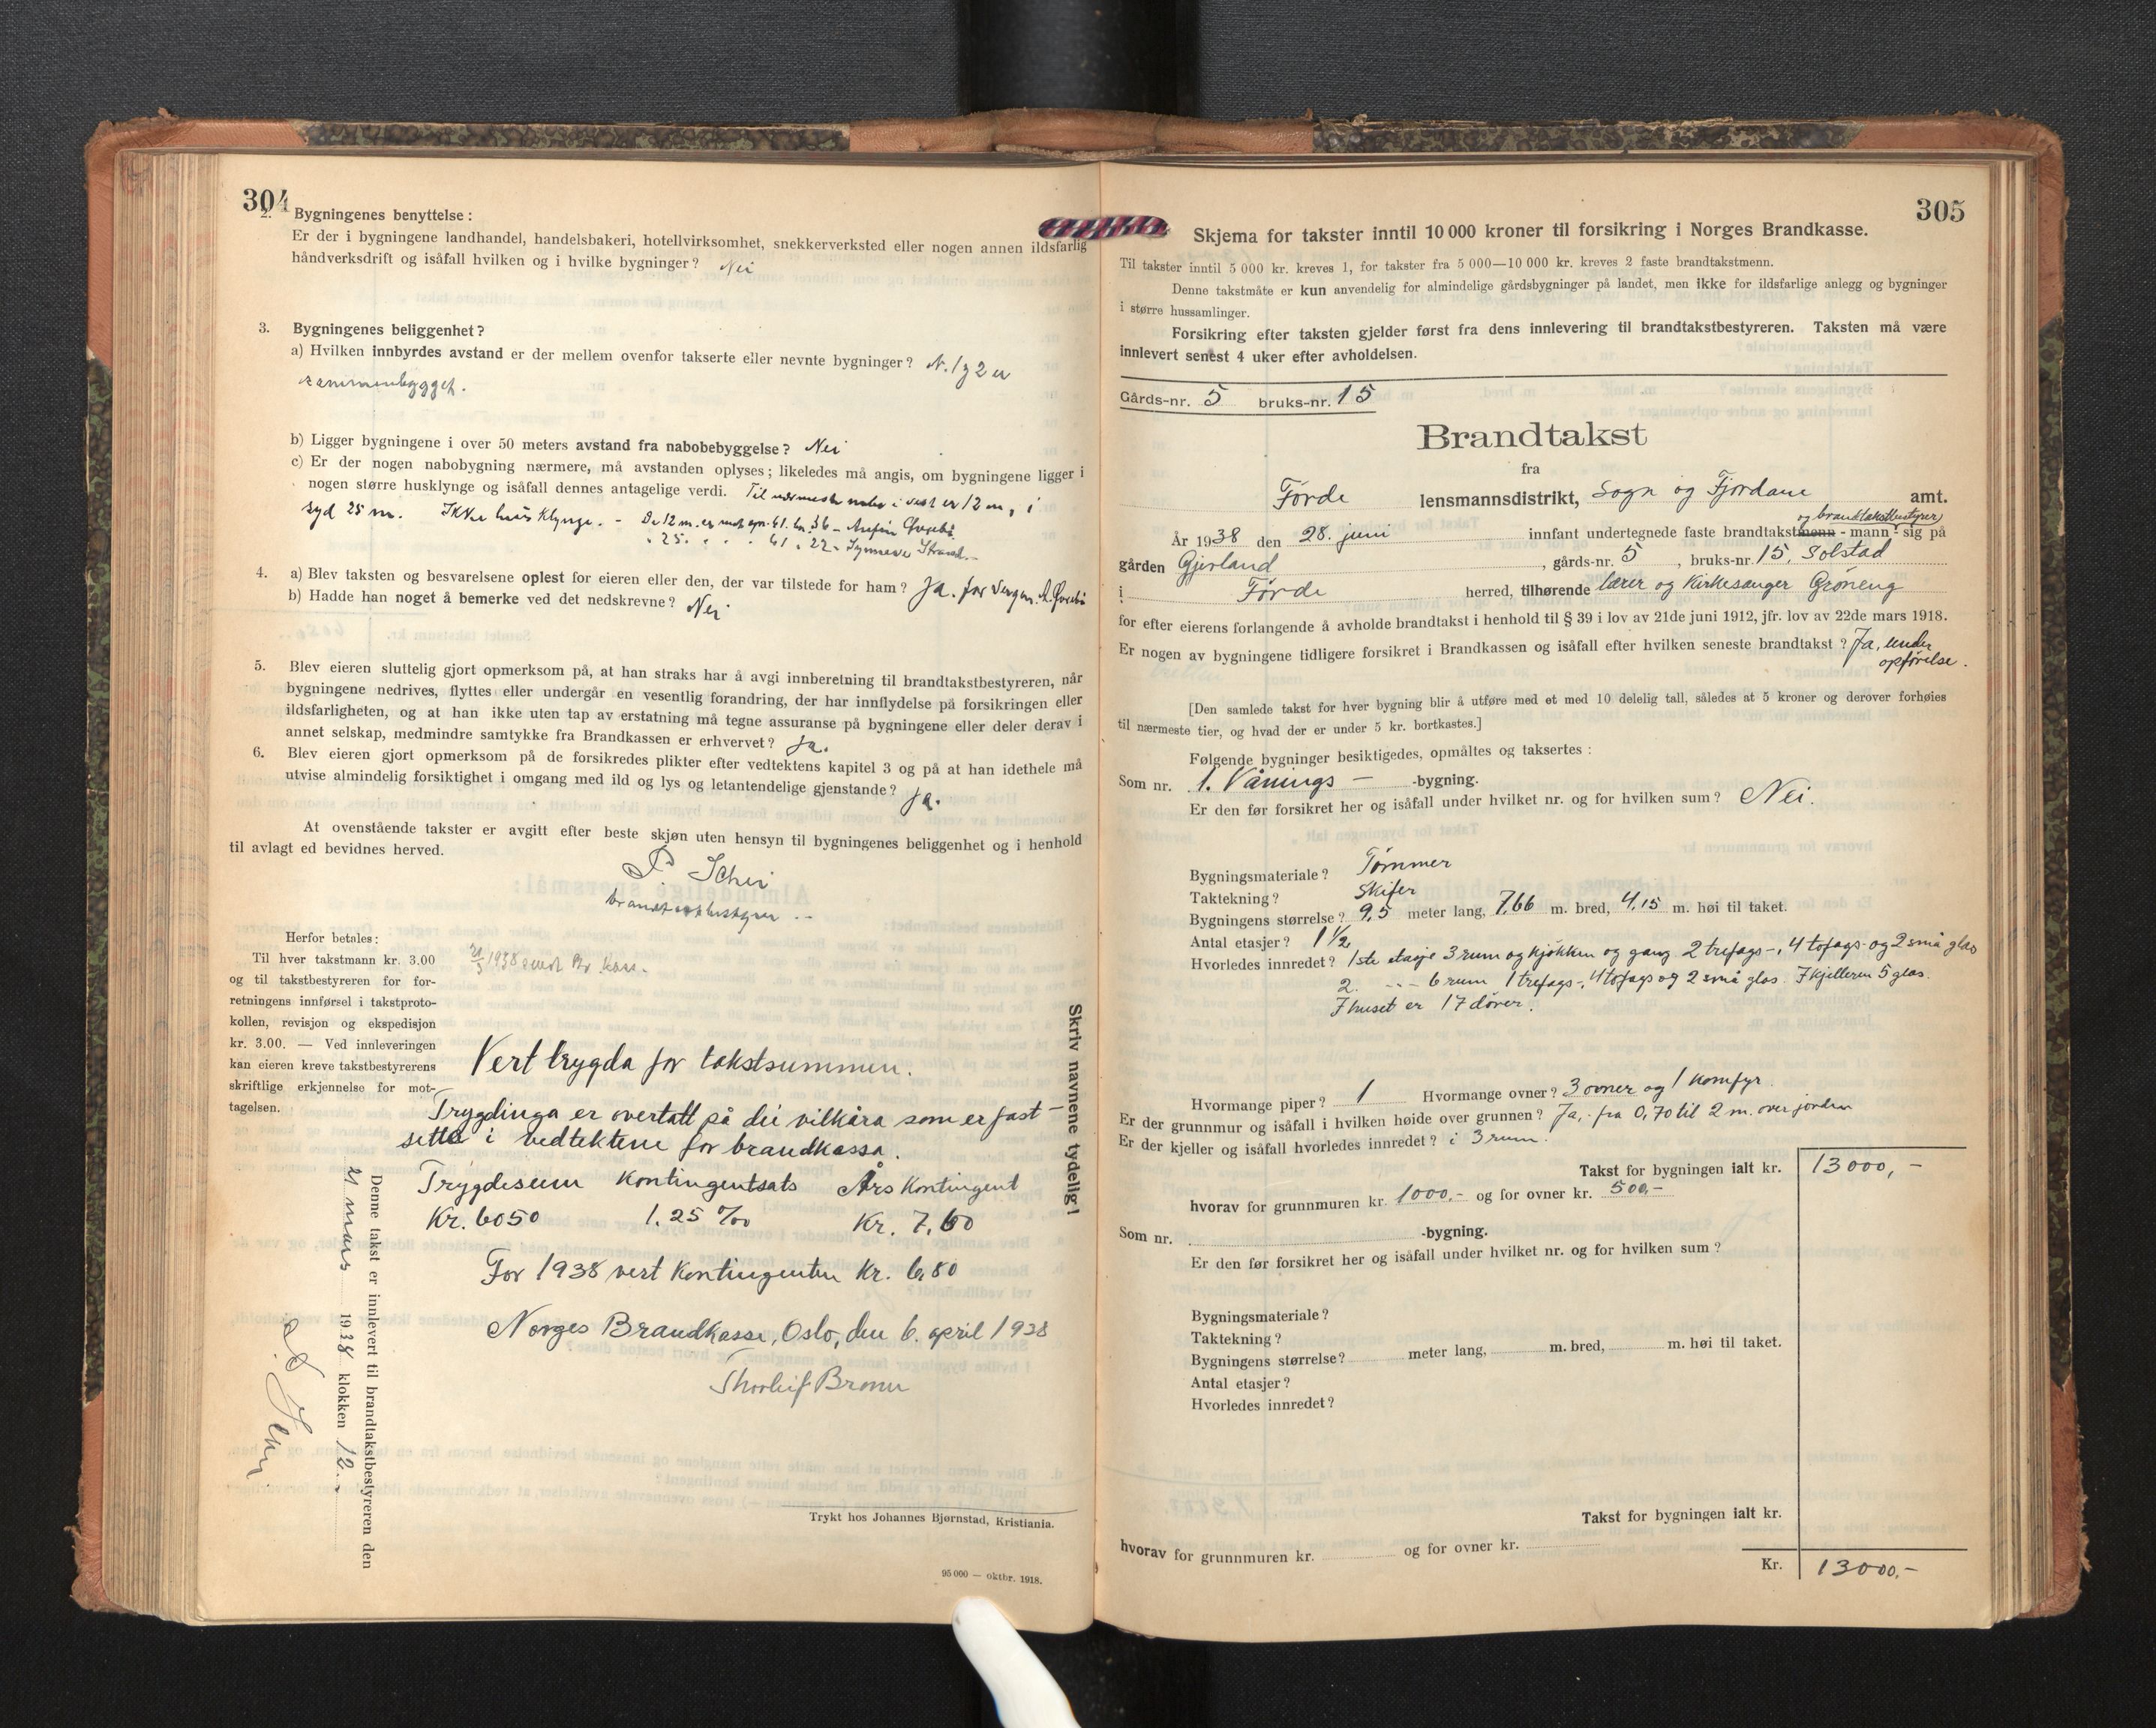 304
2. Bygningenes benyttelse:
Er der i bygningene landhandel, handelsbakeri, hotellvirksomhet, snekkerverksted eller nogen annen ildsfarlig
håndverksdrift og isåfall hvilken og i hvilke bygninger? Nei
3. Bygningenes beliggenhet?
a) Hvilken innbyrdes avstand er der mellem ovenfor takserte eller nevnte bygninger? N. 1 og 2 er
sammenbygget.
b) Ligger bygningene i over 50 meters avstand fra nabobebyggelse? Nei
c) Er der nogen nabobygning nærmere, må avstanden oplyses; likeledes må angis, om bygningene ligger i
nogen større husklynge og isåfall dennes antagelige verdi. Til nærmeste nabo i vest er 12 m, i
syd 25 m. Ikke husklynge. - De 12 m. er mot gn. 61. br. 36 -
" 25. " " " 61 " 22 - Synneve Strand.-
4. a) Blev taksten og besvarelsene oplest for eieren eller den, der var tilstede for ham? Ja. for
b) Hadde han noget å bemerke ved det nedskrevne? Nei
5. Blev eieren sluttelig gjort opmerksom på, at han straks har å avgi innberetning til brandtakstbestyreren, når
bygningene nedrives, flyttes eller undergår en vesentlig forandring, der har innflydelse på forsikringen eller
ildsfarligheten, og at han ikke uten tap av erstatning må tegne assuranse på bygningene eller deler derav i
annet selskap, medmindre samtykke fra Brandkassen er erhvervet? Ja.
6. Blev eieren gjort opmerksom på de forsikredes plikter efter vedtektens kapitel 3 og på at han idethele må
utvise almindelig forsiktighet i omgang med ild og lys og letantendelige gjenstande? Ja.
At ovenstående takster er avgitt efter beste skjøn uten hensyn til bygningenes beliggenhet og i henhold
til avlagt ed bevidnes herved.
P. Schei
brandtakstbestyrer
Herfor betales:
Til hver takstmann kr. 3.00
og til takstbestyreren for for-
retningens innførsel i takstproto-
kollen, revisjon og ekspedisjon
kr. 3.00. — Ved innleveringen
kan eieren kreve takstbestyrerens
skriftlige erkjennelse for mot-
tagelsen.
21/3 1938 sendt Br. kass.
Vert trygda for takstsummen.
Trygdinga er overtatt på dei vilkåra som er fast-
sette i vedtektene for brandkassa.
Trygdesum Kontingentsats Års Kontingent
Kr. 6050 1.25 ‰ Kr. 7,60
For 1938 vert kontingenten Kr. 6,80
Norges Brandkasse, Oslo, den 6. april 1938
Thorleif
Skriv navnene tydelig!
Denne takst er innlevert til brandtakstbestyreren den
21 mars 1938 klokken 12.
P. Schei
Trykt hos Johannes Bjørnstad, Kristiania.
95 000 — oktbr. 1918.
305
Skjema for takster inntil 10 000 kroner til forsikring i Norges Brandkasse.
Til takster inntil 5 000 kr. kreves 1, for takster fra 5 000—10 000 kr. kreves 2 faste brandtakstmenn.
Denne takstmåte er kun anvendelig for almindelige gårdsbygninger på landet, men ikke for ildsfarlige anlegg og bygninger
i større hussamlinger.
Forsikring efter taksten gjelder først fra dens innlevering til brandtakstbestyreren. Taksten må være
innlevert senest 4 uker efter avholdelsen.
Gårds-nr. 5 bruks-nr. 15
Brandtakst
fra
Førde lensmannsdistrikt, Sogn og Fjordane amt.
og brandtakstbestyrer
År 1938 den 28. juni innfant undertegnede faste brandtakstmenn - mann - sig på
gården Gjerland, gårds-nr. 5, bruks-nr. 15, Solstad
i Førde herred, tilhørende lærer og Kirkesanger Grøneng
for efter eierens forlangende å avholde brandtakst i henhold til § 39 i lov av 21de juni 1912, jfr. lov av 22de mars 1918.
Er nogen av bygningene tidligere forsikret i Brandkassen og isåfall efter hvilken seneste brandtakst? Ja, under
opførelse.
[Den samlede takst for hver bygning blir å utføre med et med 10 delelig tall, således at 5 kroner og derover forhøies
til nærmeste tier, og hvad der er under 5 kr. bortkastes.]
Følgende bygninger besiktigedes, opmåltes og taksertes:
Som nr. 1. Vånings - -bygning.
Er den før forsikret her og isåfall under hvilket nr. og for hvilken sum? Nei.
Bygningsmateriale? Tømmer
Taktekning? Skifer
Bygningens størrelse? 9,5 meter lang, 7,66 m. bred, 4,15 m. høi til taket.
Antal etasjer? 1 1/2
Hvorledes innredet? 1ste etasje 3 rum og kjøkken og gang 2 trefags-, 4 tofags- og 2 små glas
2. -"- 6 rum 1 trefags-, 4 tofags og 2 små glas. I kjelleren 5 glas.
I huset er 17 dører.
Hvormange piper? 1 Hvormange ovner? 3 ovner og 1 komfyr.
Er der grunnmur og isåfall i hvilken høide over grunnen? Ja, fra 0,70 til 2 m. over jorden
Er der kjeller og isåfall hvorledes innredet? i 3 rum.
Takst for bygningen ialt kr. 13000,-
hvorav for grunnmuren kr. 1000.- og for ovner kr. 500,-
Som nr. -bygning.
Er den før forsikret her og isåfall under hvilket nr. og for hvilken sum?
Bygningsmateriale?
Taktekning?
Bygningens størrelse? meter lang, m. bred, m. høi til taket.
Antal etasjer?
Hvorledes innredet?
Takst for bygningen ialt kr.
hvorav for grunnmuren kr. og for ovner kr.
Kr. 13000.-